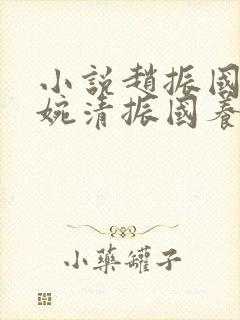 小說趙振國
婉清振國養
小藥罐子